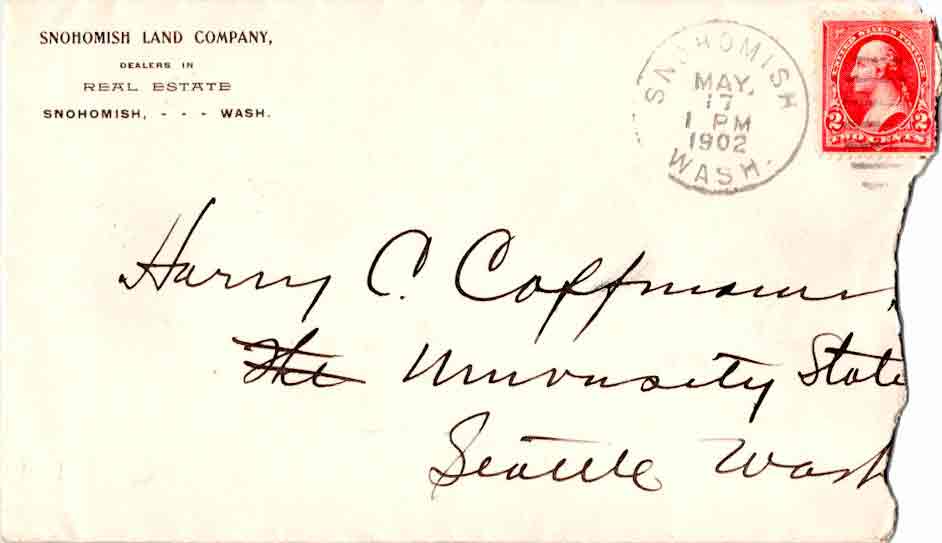 SNOHOMISH LAND COMPANY,
DEALERS IN
REAL ESTATE
SNOHOMISH, - - - WASH.
SNOHOMISH
MAY.
17
1 PM
1902
WASH.
UNITED STATES POSTAGE
2 2
TWO CENTS
Harry C. Coffman,
The University State
Seattle Wash